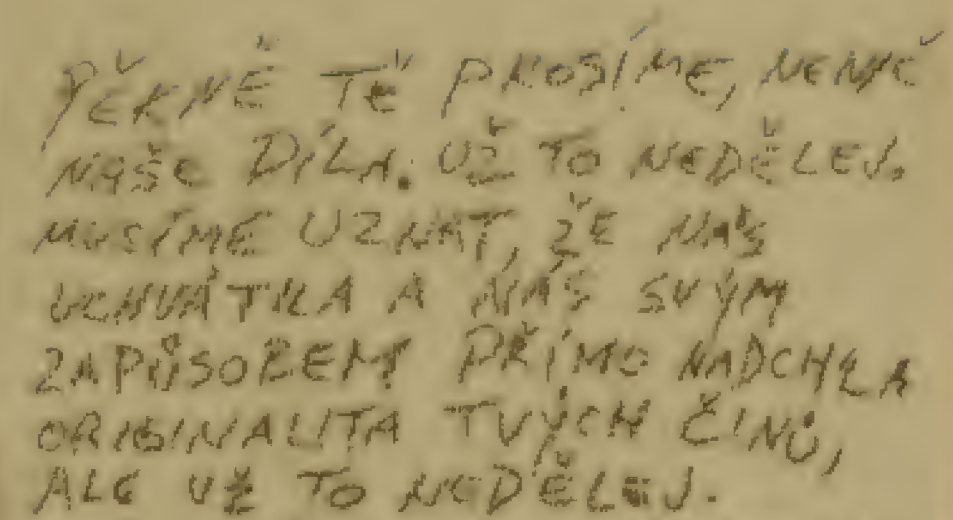 PĚKNĚ TĚ PROSÍME, NENIČ
NAŠE DÍLA. UŽ TO NEDĚLEJ.
MUSÍME UZNAT, ŽE NÁS
UCHVÁTILA A NÁŠ SVÝM
ZAPŮSOBEM PŘÍMO NADCHLA
ORIGINALITA TVÝCH ČINŮ,
ALE UŽ TO NEDĚLEJ.